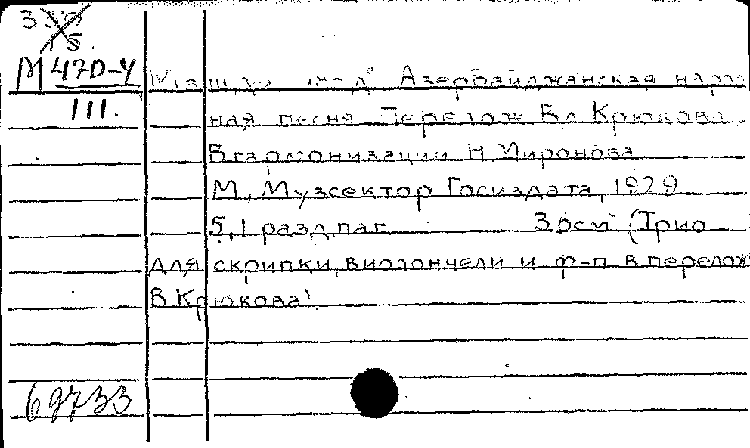 М 47D-4
III.
Азербайджанская народ-
ная песня Перелож Вл Крюкова
В гармонизации Н Миронова
М., Музсектор Госиздата, 1929
5,1 разд паг. (Трио
для скрипки, виолончели и ф-п в перелож
В. Крюкова).
69733